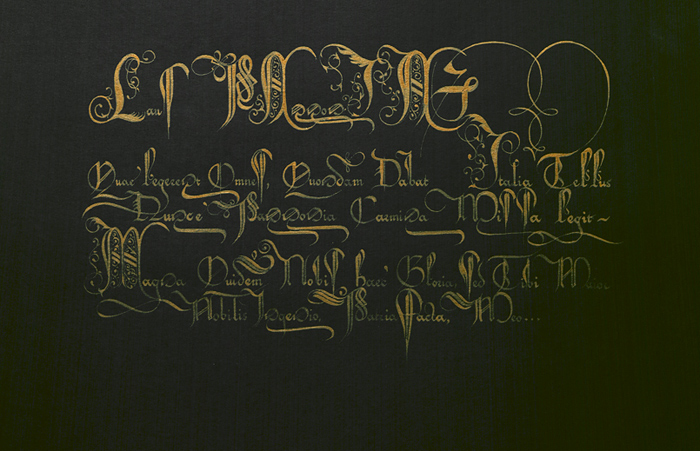 Laus
Quae legerent Omnes, Quondam Dabat Itala Tellus
Nunc è Pannonia Carmina Missa legit ~
Magna Quidem Nobis haec Gloria, sed Tibi Maior
Nobilis Ingenio, Patria facta, Meo...